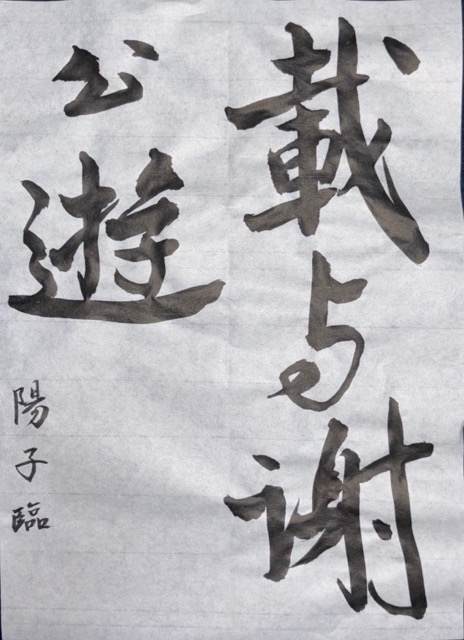 載与谢
公遊
陽子臨